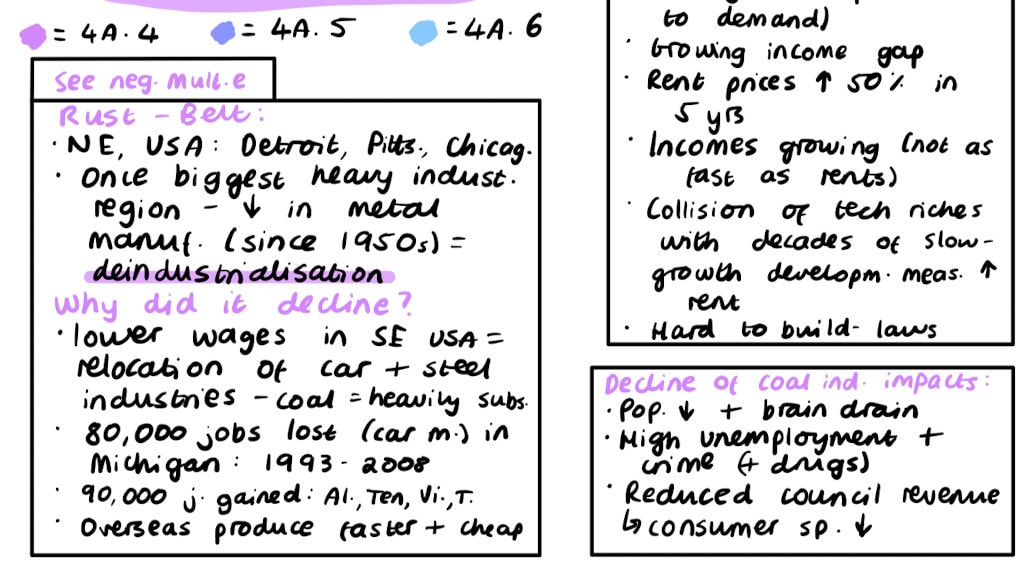 = 4A.4
= 4A.5
= 4A.6
See neg. mult. e
Rust-Belt:
· NE, USA: Detroit, Pitts., Chicag.
· Once biggest heavy indust.
region - ↓ in metal
manuf. (since 1950s) =
deindustrialisation
Why did it decline?
· lower wages in SE USA =
relocation of car + steel
industries - coal = heavily subs.
· 80,000 jobs lost (car m.) in
Michigan: 1993-2008
· 90,000 j. gained: Al., Ten, Vi., T.
· Overseas produce faster + cheap
to demand)
· Growing income gap
· Rent prices ↑ 50% in
5 yrs
· Incomes growing (not as
fast as rents)
· Collision of tech riches
with decades of slow-
growth developm. meas. ↑
rent
· Hard to build- laws
Decline of coal ind. impacts:
· Pop. ↓ + brain drain
· High unemployment +
crime (+ drugs)
· Reduced council revenue
↳ consumer sp. ↓